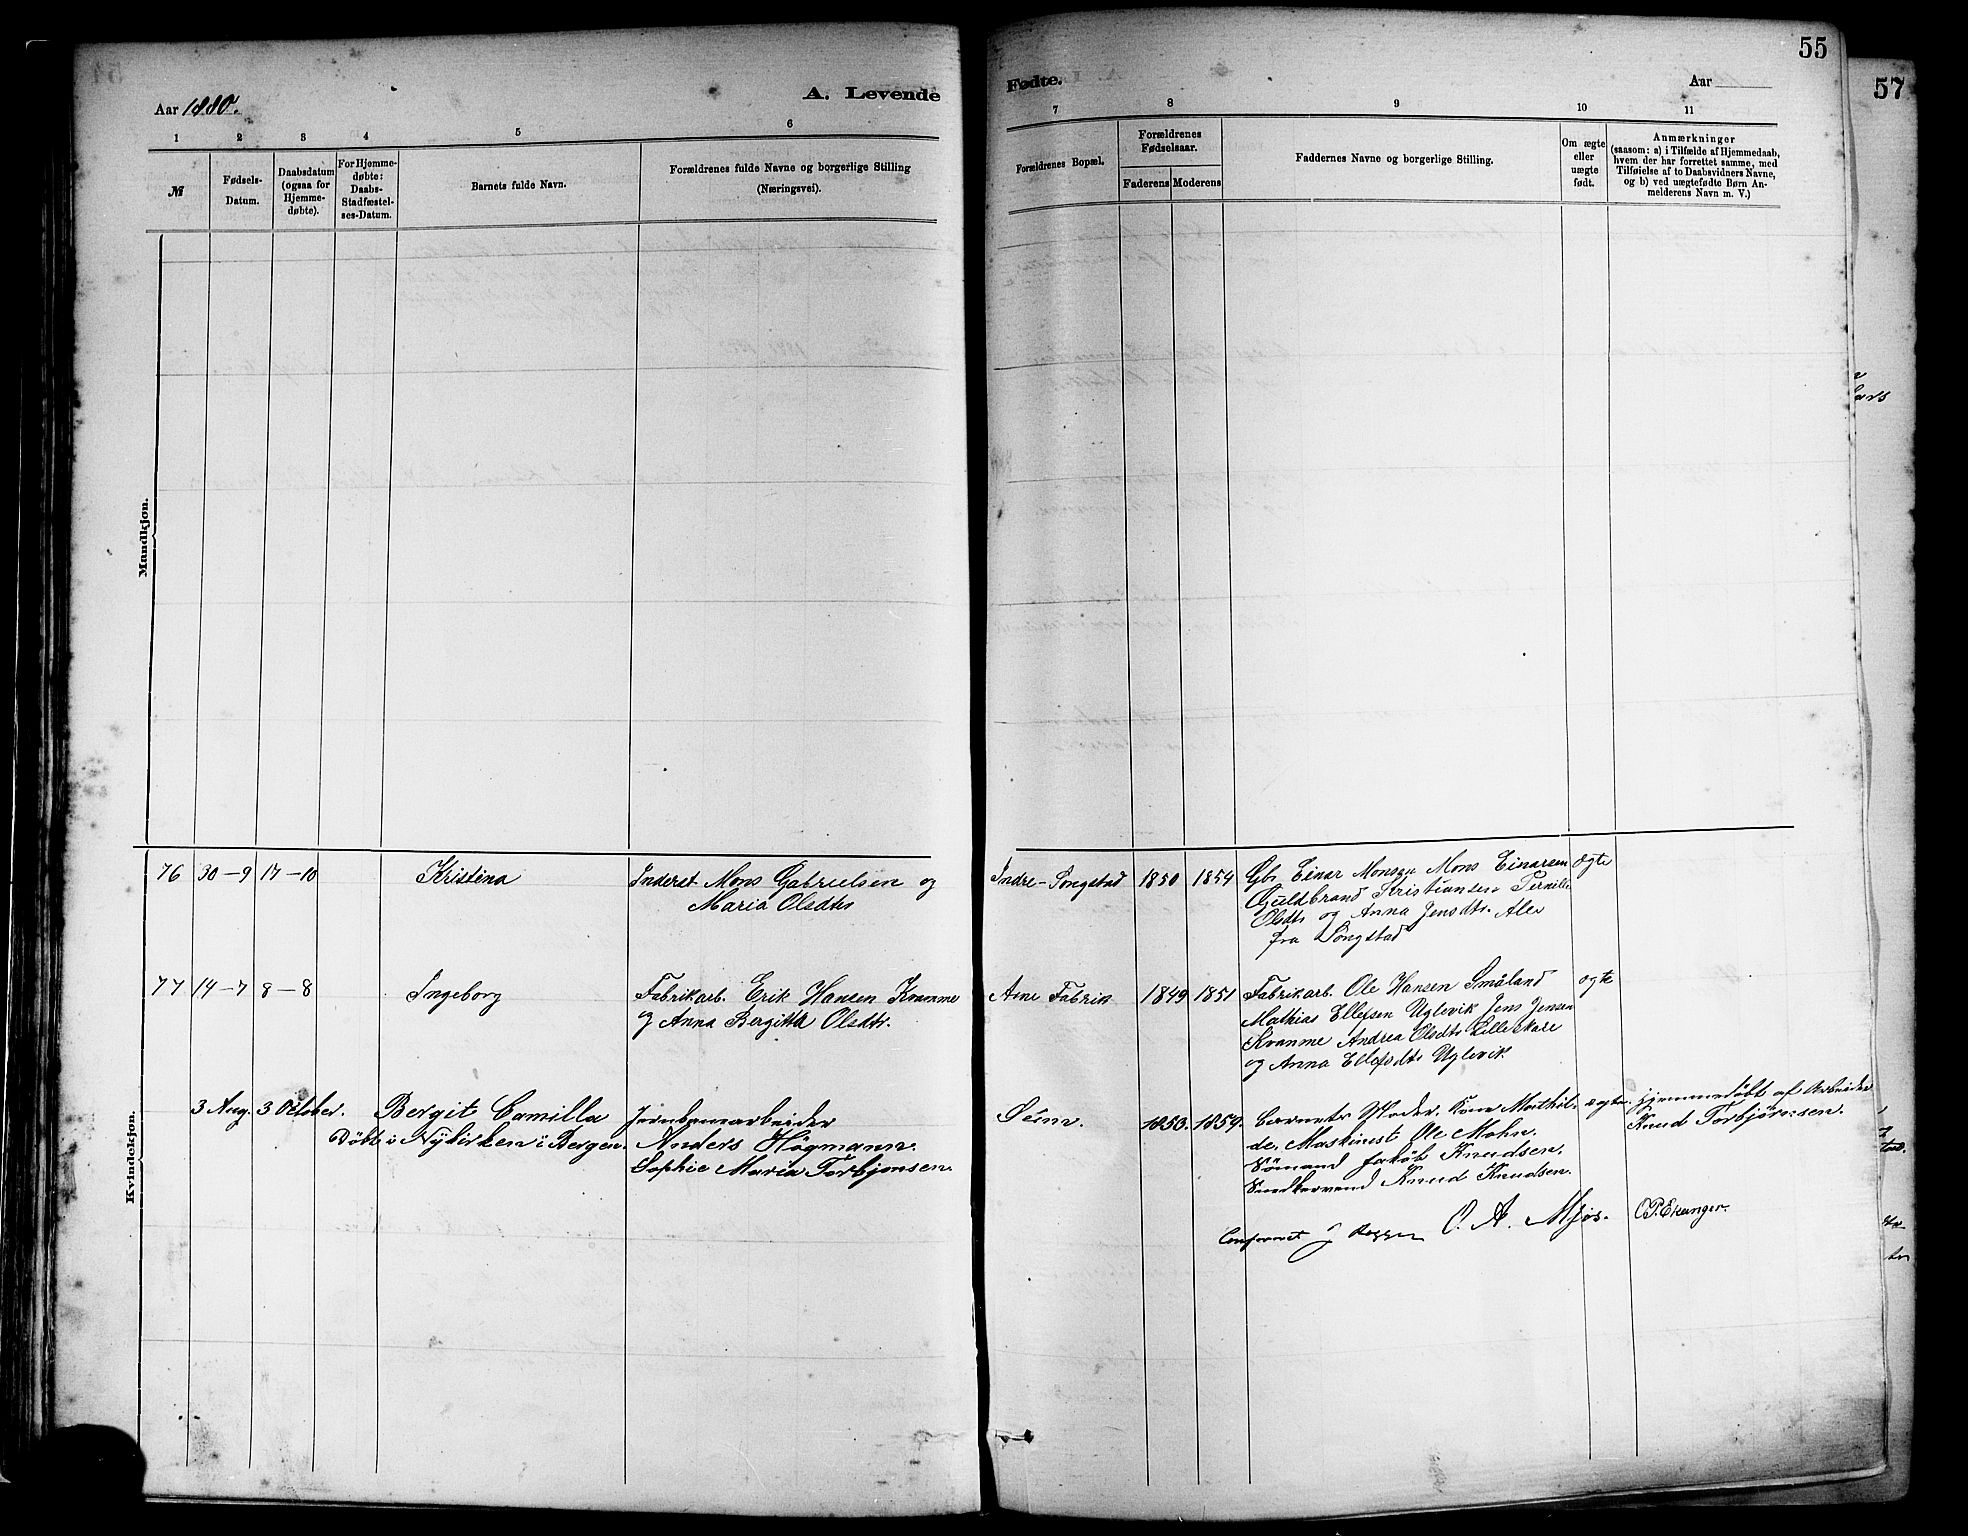 55
57
Aar 1880.
A. Levende
Fødte.
Aar
1 2 3 4 5 6 7 8 9 10 11
№
Fødsels-
Datum.
Daabsdatum
(ogsaa for
Hjemme-
døbte).
For Hjemme-
døbte:
Daabs-
Stadfæstel-
ses-Datum.
Barnets fulde Navn.
Forældrenes fulde Navne og borgerlige Stilling
(Næringsvei).
Forældrenes Bopæl.
Forældrenes
Fødselsaar.
Faderens Moderens
Faddernes Navne og borgerlige Stilling.
Om ægte
eller
uægte
født.
Anmærkninger
(saasom: a) i Tilfælde af Hjemmedaab,
hvem der har forrettet samme, med
Tilføielse af to Daabsvidners Navne,
og b) ved uægtefødte Børn An-
melderens Navn m. V.)
Mandkjøn.
Kvindekjøn.
76 30-9 17-10 Kristina
Inderst Mons Gabrielsen og
Maria Olsdtr
Indre-Songstad 1850 1854
Gbr Einar Monsen Mons Einarsen
Guldbrand Kristiansen Pernille
Olsdtr og Anna Jensdtr. Alle
fra Songstad
ægte
77 14-7 8-8 Ingeborg
Fabrikarb. Erik Hansen Kvamme
og Anna Bergitta Olsdtr.
Arne Fabrik 1849 1851
Fabrikarb. Ole Hansen Småland
Mathias Ellefsen Uglevik Jens Jensen
Kvamme Andrea Olsdtr Lilleskare
og Anna Ellefsdtr Uglevik
ægte
3 Aug. 3 October. Bergit Camilla
Døbt i Nykirken i Bergen.
Jernbanearbeider
Anders Högmann.
Sophie Maria Torbjønsen.
1850. 1859.
Barnets Moder. Kone Mathil-
de. Maskinest Ole Mohn.
Sömand Jakob Knudsen.
Knud Knudsen.
ægte.
hjemmedöbt af Arbeider
Knud Torbjörnsen.
O. A. Mjøs.
O.P. Ekanger.